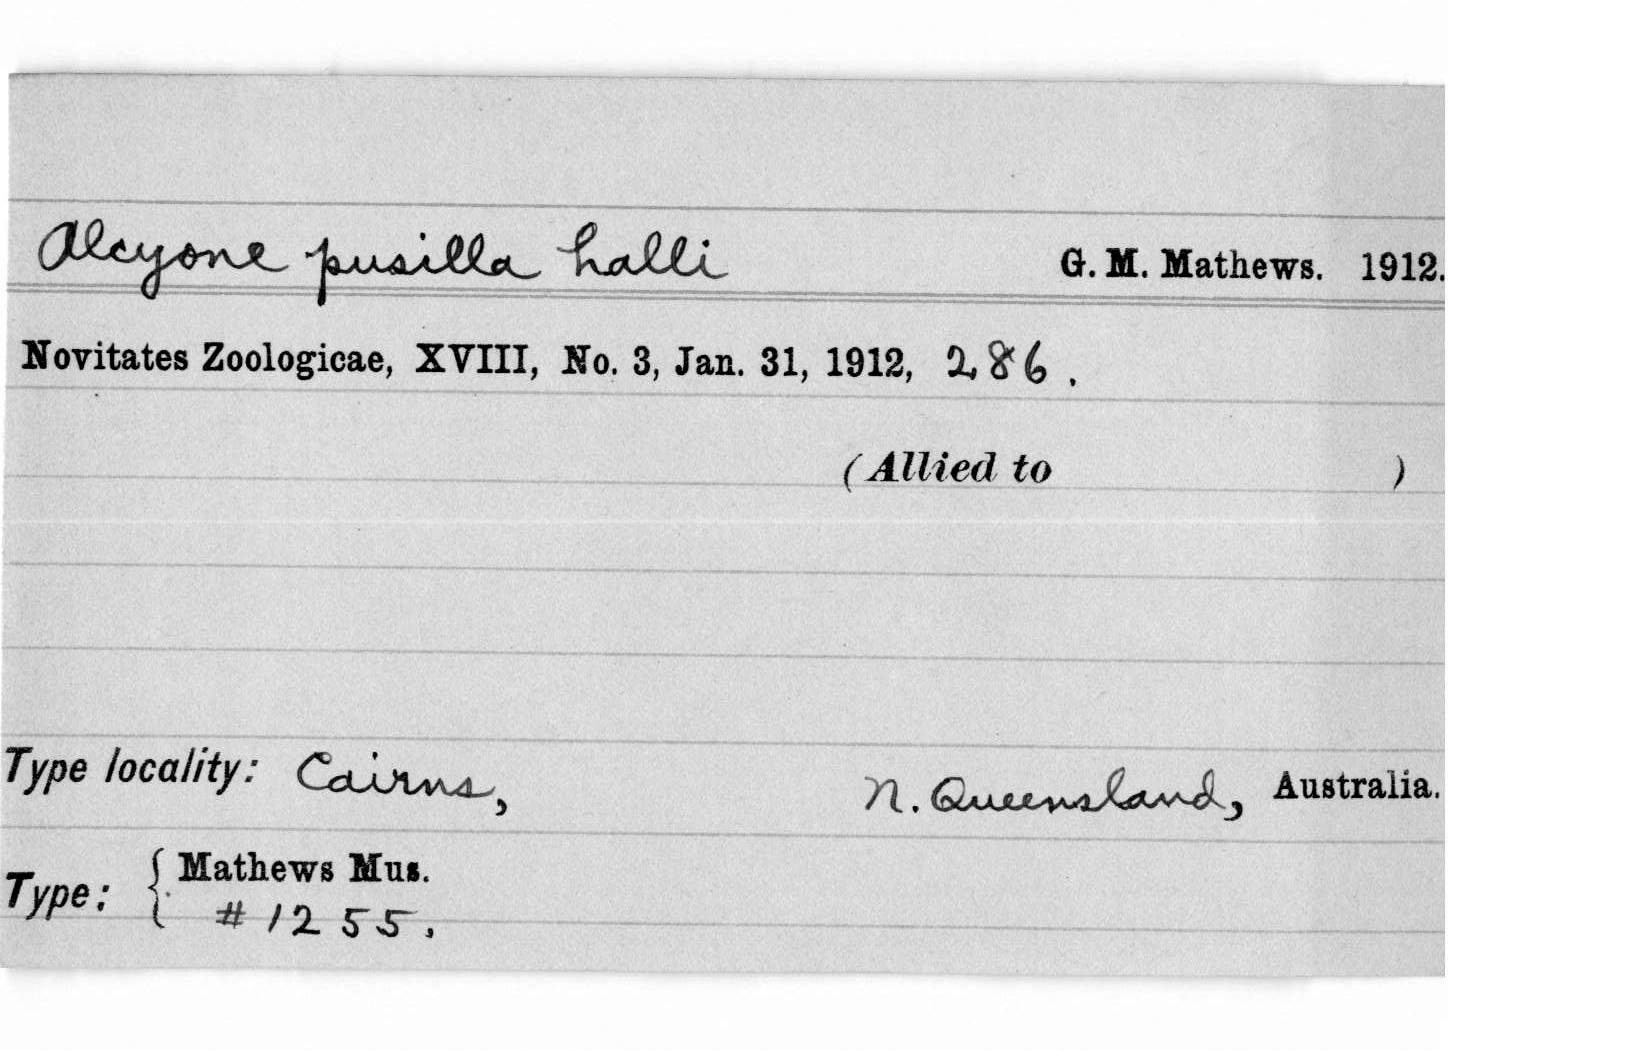 Alcyone pusilla halli G. M. Mathews. 1912.
Novitates Zoologicae, XVIII, No. 3, Jan. 31, 1912, 286.
(Allied to )
Type locality: Cairns, N. Queensland, Australia.
Type: { Mathews Mus.
# 1255.